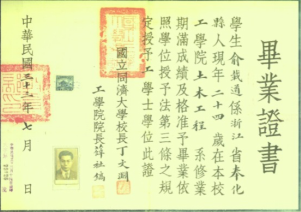 畢業證書
學生俞載道係浙江省奉化
縣人現年二十四歲在本校
工學院土木工程系修業
期滿成績及格准予畢業依
照學位授予法第三條之規
定授予工學士學位此證
國立同濟大學校長丁文淵
工學院院長薛祉鎬
中華民國三十三年七月 日